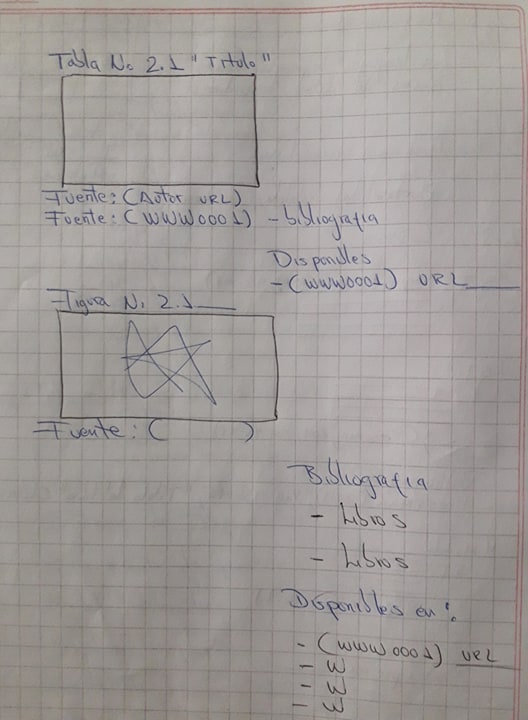 Tabla No 2.1 "Titulo"
Fuente: (Autor URL)
Fuente: (WWW0001) - bibliografia
Disponibles
- (WWW0001) URL
Figura No 2.1
Fuente: ( )
Bibliografia
- Libros
- Libros
Disponibles en:
- (WWW0001) URL
- W
- W
- W